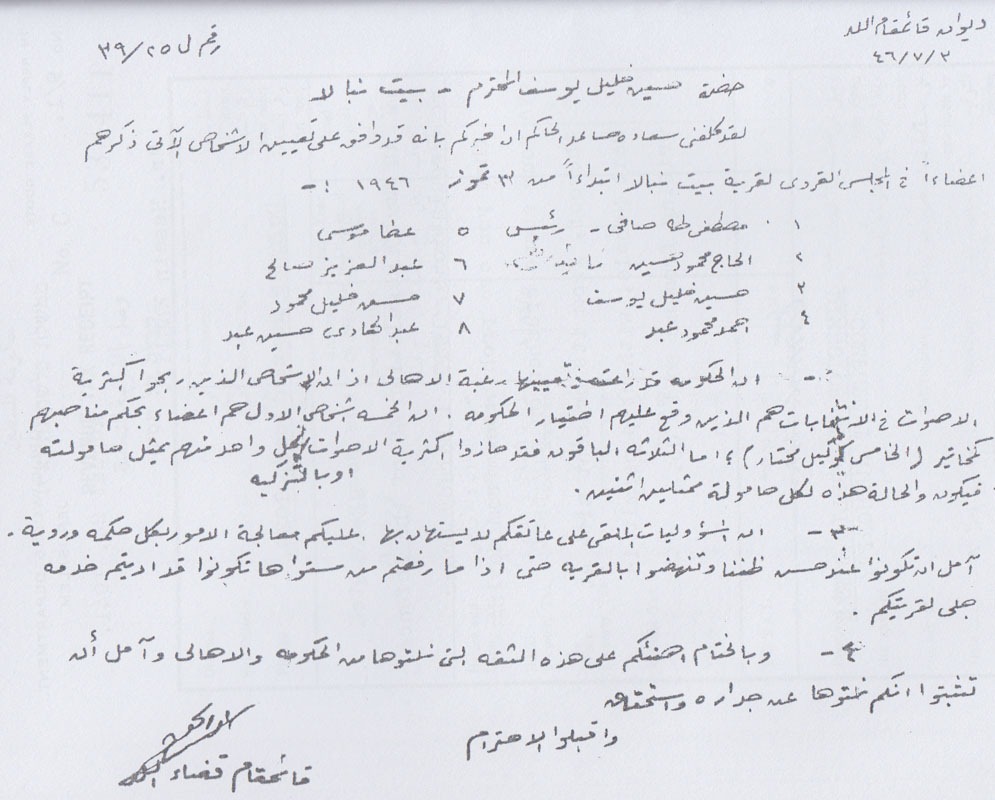 ديوان قائمقام اللد
رقم ل ٣٩/٢٥
٤٦/٧/٣
حضرة حسين خليل يوسف المحترم - بيت نبالا
لقد كلفني سعادة مساعد الحاكم ان اخبركم بانه قد وافق على تعيين الاشخاص الآتي ذكرهم
اعضاءاً في المجلس القروي لقرية بيت نبالا ابتداءاً من ٣ تموز ١٩٤٦ :-
١ مصطفى طه صافي - رئيس ٥ عطا موسى
٢ الحاج محمود حسين ٦ عبد العزيز صالح
٣ حسين خليل يوسف ٧ حسن خليل محمود
٤ احمد محمود عبد ٨ عبد الهادي حسين عبد
٢- ان الحكومه قد راعت في تعيينها رغبة الاهالي اذ ان الاشخاص الذين ربحوا اكثرية
الاصوات في الانتخابات هم الذين وقع عليهم اختيار الحكومه . ان الخمسه اشخاص الاول هم اعضاء بحكم مناصبهم
كمخاتير (الخامس كوكيل مختار) ، اما الثلاثه الباقون فقد حازوا اكثرية الاصوات لكل واحد منهم يمثل حامولته
او بالتزكيه
فيكون والحالة هذه لكل حامولة ممثلين اثنين .
٣- ان المسؤوليات الملقى على عاتقكم لا يستهان بها . عليكم معالجة الامور بكل حكمه وروية .
آمل ان تكونوا عند حسن ظننا وتنهضوا بالقريه حتى اذا ما رفعتم من مستواها تكونوا قد اديتم خدمه
جلى لقريتكم .
٤- وبالختام اهنئكم على هذه الثقه التي نلتوها من الحكومه والاهالي وآمل أن
تثبتوا انكم نلتوها عن جداره واستحقاق
واقبلوا الاحترام
قائمقام قضاء اللد